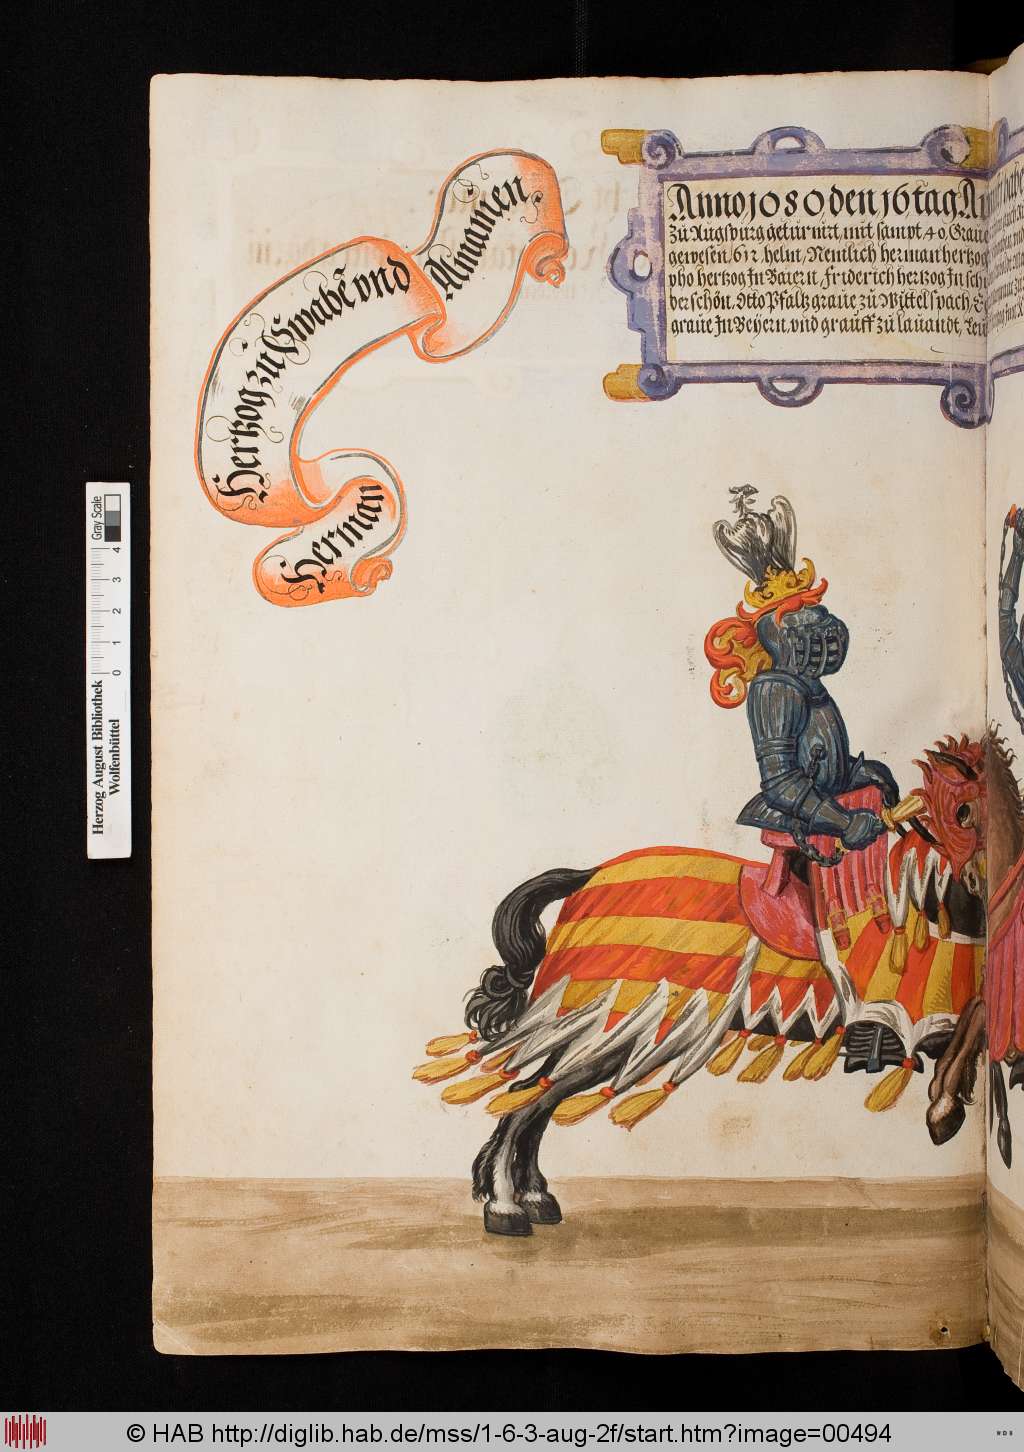 Herman
Hertzog zů Swabē vnd
Almanien
Anno 1080 den 16 tag
zů Augspurg geturnirt mit sampt 40. Graue
gewesen 632. helm, Nemlich herman hertzog
pho hertzog In Baiern. Friderich hertzog In
der schön. Otto Pfaltzgraue zů Wittelspach,
graue In Beyern. vnd grauff zů
Gray Scale
0 1 2 3 4
Herzog August Bibliothek
Wolfenbüttel
© HAB http://diglib.hab.de/mss/1-6-3-aug-2f/start.htm?image=00494